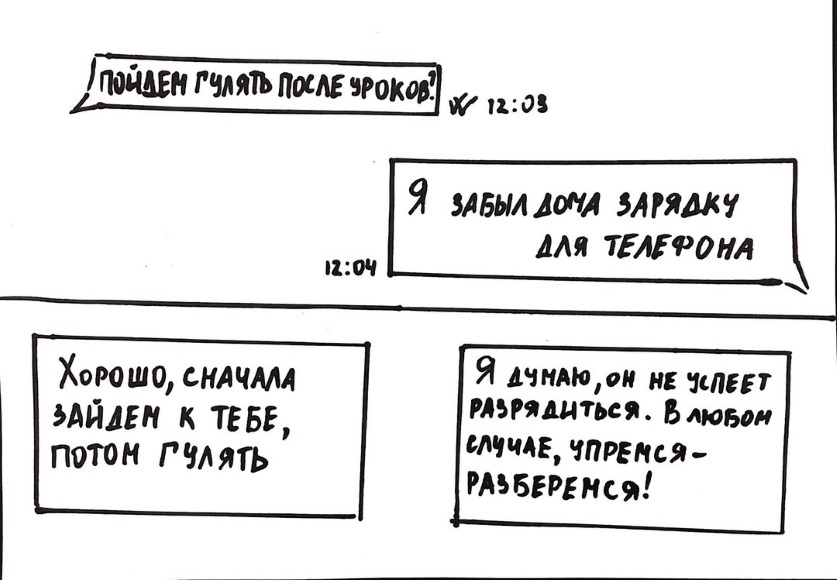 ПОЙДЕМ ГУЛЯТЬ ПОСЛЕ УРОКОВ?
12:03
Я ЗАБЫЛ ДОМА ЗАРЯДКУ
ДЛЯ ТЕЛЕФОНА
12:04
ХОРОШО, СНАЧАЛА
ЗАЙДЕМ К ТЕБЕ,
ПОТОМ ГУЛЯТЬ
Я ДУМАЮ, ОН НЕ УСПЕЕТ
РАЗРЯДИТЬСЯ. В ЛЮБОМ
СЛУЧАЕ, УПРЕМСЯ-
РАЗБЕРЕМСЯ!